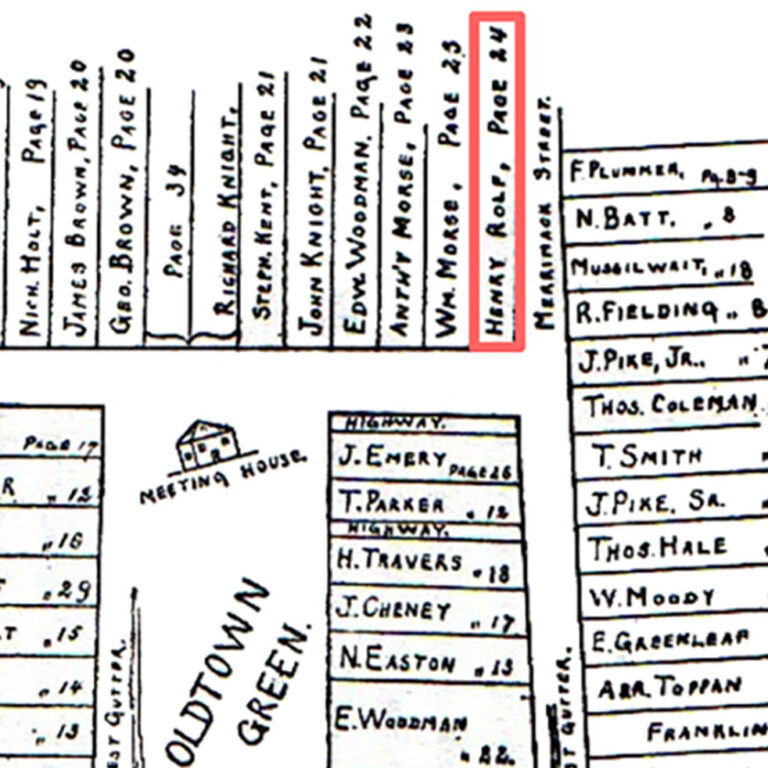 NICH. HOLT, PAGE 19
JAMES BROWN, PAGE 20
GEO. BROWN, PAGE 20
PAGE 34
RICHARD KNIGHT,
STEPH. KENT, PAGE 21
JOHN KNIGHT, PAGE 21
EDW. WOODMAN, PAGE 22
ANTH'Y MORSE, PAGE 23
WM. MORSE, PAGE 23
HENRY ROLF, PAGE 24
MERRIMACK STREET.
F. PLUMMER, Pg. 8-9
N. BATT. " 8
MUSSILWAIT, " 18
R. FIELDING " 8
J. PIKE, JR., " 7
THOS. COLEMAN
T. SMITH "
J. PIKE, SR.
THOS. HALE
W. MOODY
E. GREENLEAF
ABR. TOPPAN
FRANKLIN
PAGE 17
R. " 12
" 16
" 29
T " 15
" 14
" 13
EST GUTTER.
MEETING HOUSE.
OLDTOWN
GREEN.
HIGHWAY.
J. EMERY PAGE 26
T. PARKER " 12
HIGHWAY.
H. TRAVERS " 18
J. CHENEY " 17
N. EASTON " 13
E. WOODMAN
" 22.
ST GUTTER.